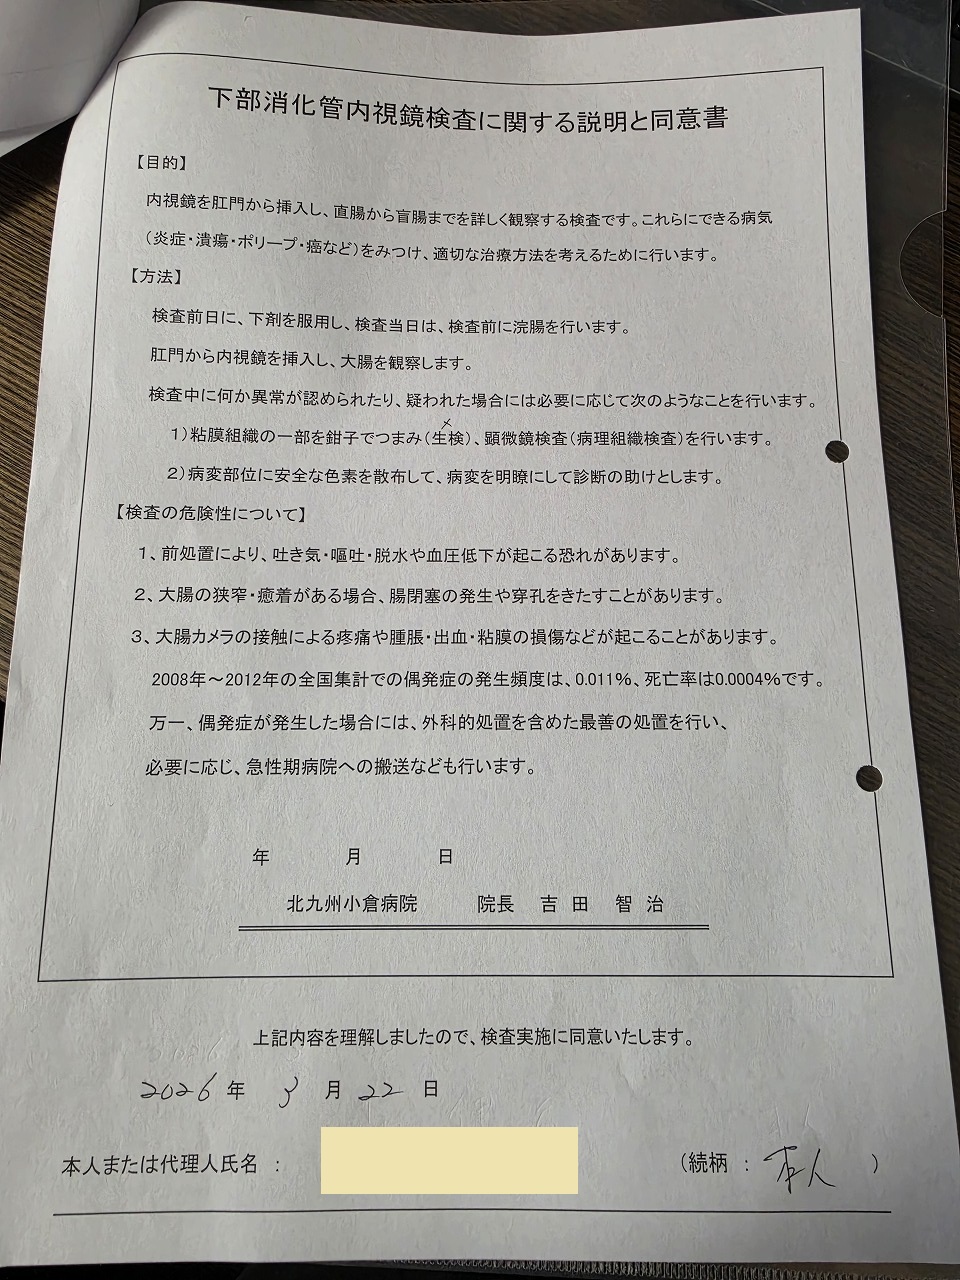 下部消化管内視鏡検査に関する説明と同意書
【目的】
内視鏡を肛門から挿入し、直腸から盲腸までを詳しく観察する検査です。これらにできる病気
（炎症・潰瘍・ポリープ・癌など）をみつけ、適切な治療方法を考えるために行います。
【方法】
検査前日に、下剤を服用し、検査当日は、検査前に浣腸を行います。
肛門から内視鏡を挿入し、大腸を観察します。
検査中に何か異常が認められたり、疑われた場合には必要に応じて次のようなことを行います。
１）粘膜組織の一部を鉗子でつまみ（生検）、顕微鏡検査（病理組織検査）を行います。
２）病変部位に安全な色素を散布して、病変を明瞭にして診断の助けとします。
【検査の危険性について】
１、前処置により、吐き気・嘔吐・脱水や血圧低下が起こる恐れがあります。
２、大腸の狭窄・癒着がある場合、腸閉塞の発生や穿孔をきたすことがあります。
３、大腸カメラの接触による疼痛や腫脹・出血・粘膜の損傷などが起こることがあります。
2008年～2012年の全国集計での偶発症の発生頻度は、0.011％、死亡率は0.0004％です。
万一、偶発症が発生した場合には、外科的処置を含めた最善の処置を行い、
必要に応じ、急性期病院への搬送なども行います。
年 月 日
北九州小倉病院 院長 吉田 智治
上記内容を理解しましたので、検査実施に同意いたします。
2026 年 3 月 22 日
本人または代理人氏名 ： （続柄 ： 本人 ）